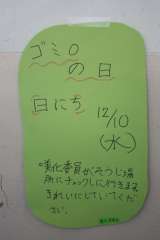 ゴミ0
の日
日にち
12/10
(水)
*美化委員がそうじ場
所にチェックしに行きます
きれいにしていてくだ
さい。